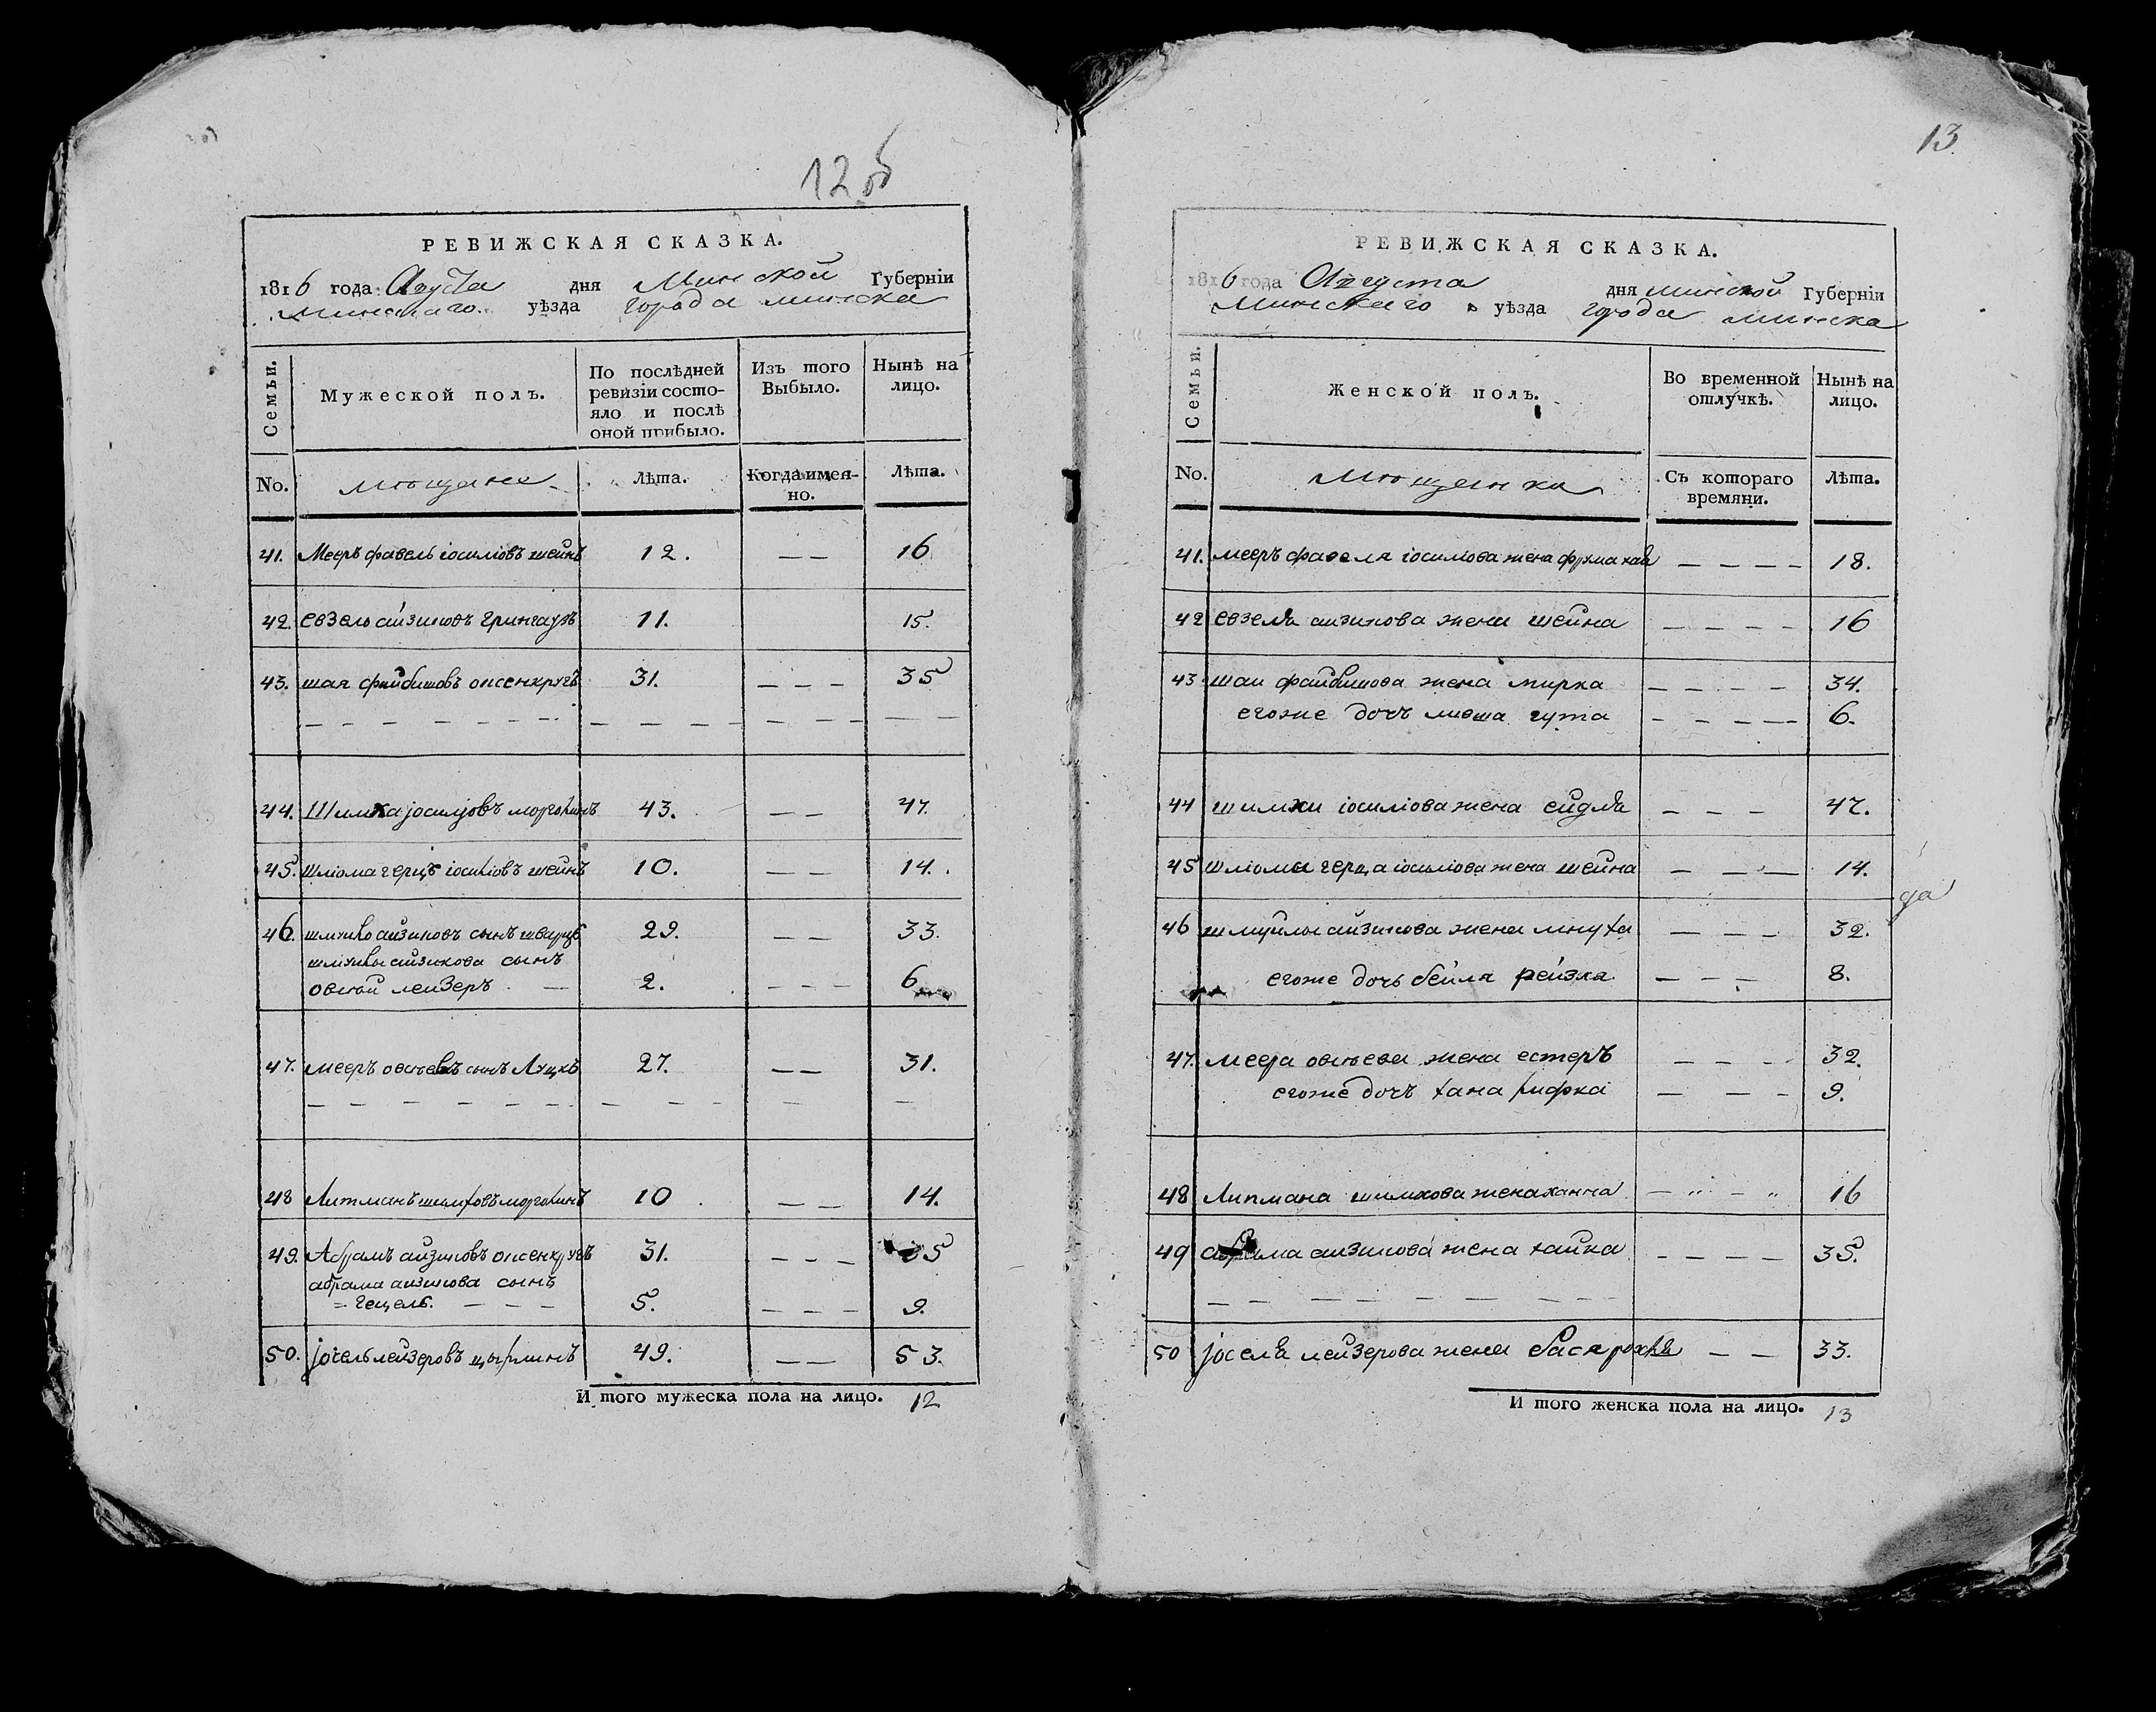 12 об
РЕВИЖСКАЯ СКАЗКА.
1816 года Августа дня Минской Губерніи
Минскаго уѣзда города минска
Семьи.
Мужеской полъ.
По послѣдней ревизіи состо-
яло и послѣ
оной прибыло.
Изъ того
Выбыло.
Нынѣ на
лицо.
No. мѣщане Лѣта. Когда имен-
но. Лѣта.
41. Мееръ фавель іосиліовъ шейнъ 12. — — 16
42. евзель айзиковъ грингаузъ 11. 15.
43. шая файбишовъ оксенкругъ 31. — — — 35
44. Шимха јосиліовъ 43. — — 47.
45. шліома герцъ іосиліовъ шейнъ 10. — — 14.
46. шмуйло айзиковъ сынъ шварцъ 29. — — 33.
шмуйлы айзикова сынъ
овсѣй лейзеръ — 2. — — — 6
47. мееръ овсѣевъ сынъ 27. — — 31.
48 Липманъ шимховъ 10 — — 14.
49. Абрамъ айзиковъ оксенкругъ 31. — — — 35
абрама айзикова сынъ
= гецель. — — — 5. — — — 9.
50. јосель лейзеровъ 49. — — 53.
И того мужеска пола на лицо. 12
13
РЕВИЖСКАЯ СКАЗКА.
1816 года Августа дня минской Губерніи
Минскаго уѣзда города минска
Семьи.
Женской полъ.
Во временной
отлучкѣ.
Нынѣ на
лицо.
No. Мѣщанки Съ котораго
времяни. Лѣта.
41. мееръ фавеля іосиліова жена фрума хая — — — — 18.
42 евзеля айзикова жена шейна — — — — 16
43 шаи файбишова жена мирка — — — — 34.
егоже дочъ гута — — — — 6.
44 шимхи іосиліова жена ейдля — — — 47.
45 шліомы герца іосиліова жена шейна — — — 14.
46 шмуйлы айзикова жена мнуха — — — 32.
егоже дочь бейля рейзка — — — 8.
47. меера овсѣева жена естеръ — — — 32.
егоже дочъ хана рифка — — — 9.
48 Липмана шимхова жена ханна — „ — „ 16
49 абрама айзикова жена хайка — — — — 35.
50 јоселя лейзерова жена бася рохля — — 33.
И того женска пола на лицо. 13